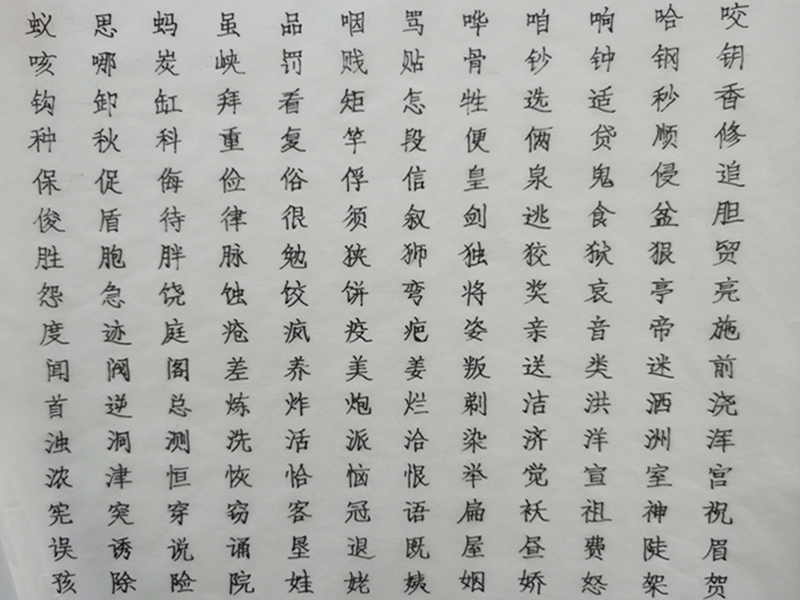 蚁思蚂虽品咽骂哗咱响哈咬
咳哪炭峡罚贱贴骨钞钟钢钥
钩卸缸拜看矩怎牲选适秒香
种秋科重复竿段便俩贷顺修
保促侮俭俗俘信皇泉鬼侵追
俊盾待律很须叙剑逃食盆胆
胜胞胖脉勉狭狮独狡狱狠贸
怨急饶蚀饺饼弯将奖哀亭亮
度迹庭疮疯疫疤姿亲音帝施
闻阀阁差养美姜叛送类迷前
首逆总炼炸炮烂剃洁洪洒浇
浊洞测洗活派洽染济洋洲浑
浓津恒恢恰恼恨举觉宣室宫
宪突穿窃客冠语扁袄祖神祝
误诱说诵垦退既屋昼费陡眉
孩除险院娃姥姨姻娇怒架贺